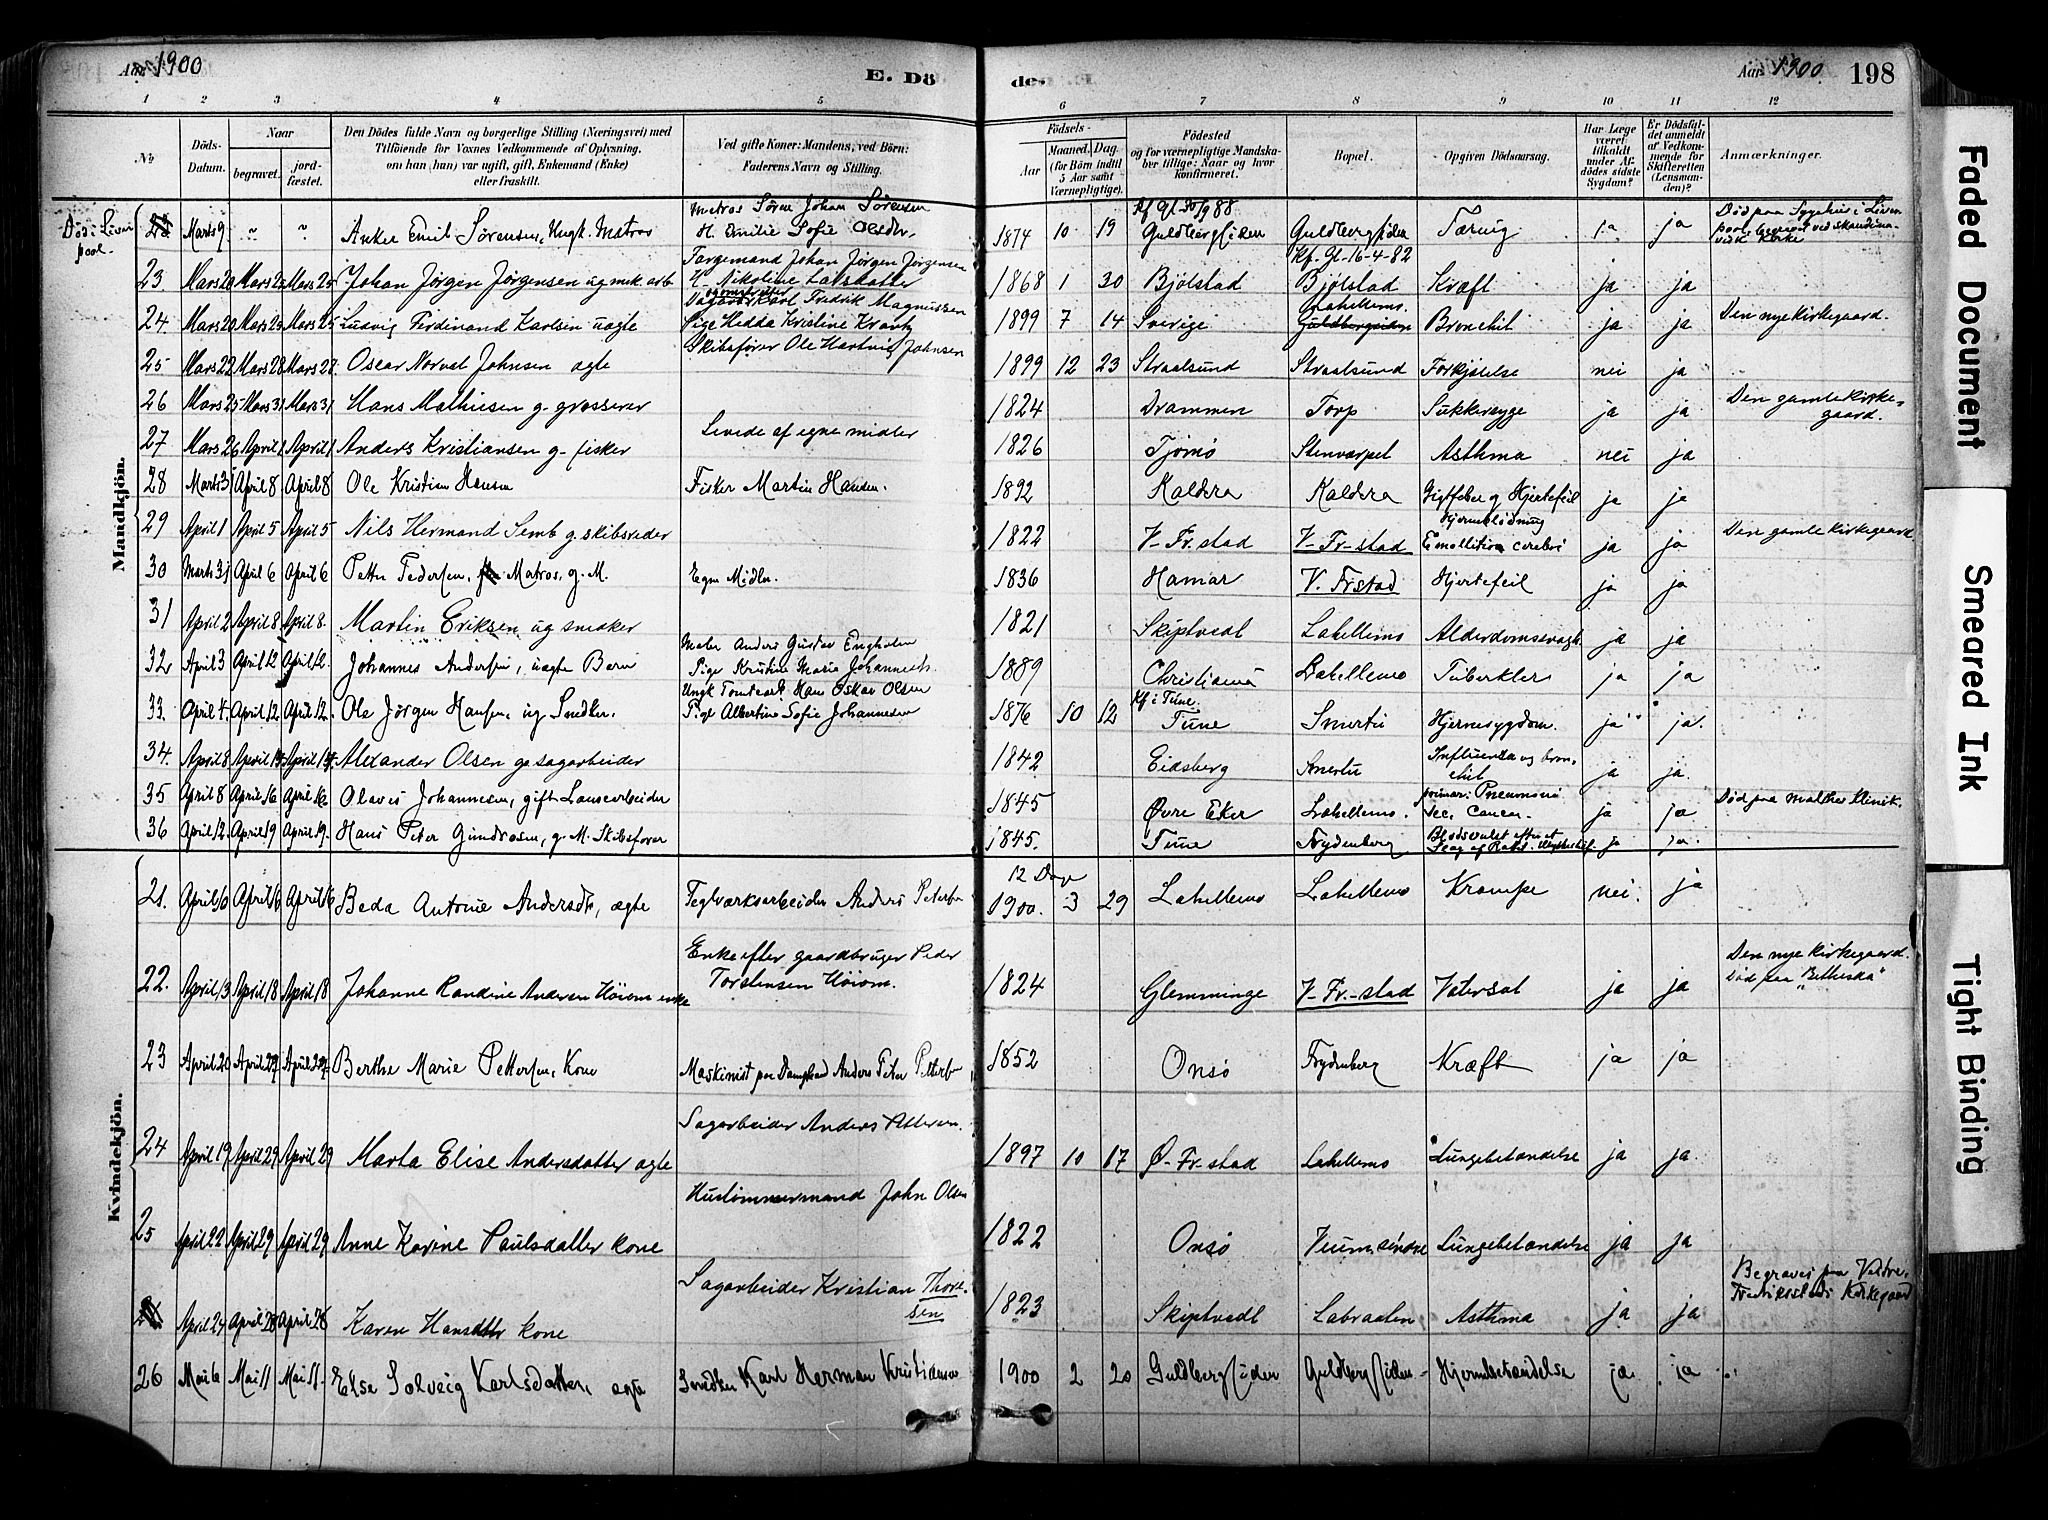 Aar 1900
E. Dö
de.
Aar 1900.
198
1 2 3 4 5 6 7 8 9 10 11 12
No
Döds-Datum.
Naar
begravet.
jord-fæstet.
Den Dödes fulde Navn og borgerlige Stilling (Næringsvei) med
Tilföiende for Voxnes Vedkommende af Oplysning,
om han (hun) var ugift, gift, Enkemand (Enke)
eller fraskilt.
Ved gifte Koner: Mandens, ved Börn:
Faderens Navn og Stilling.
Födsels-
Aar
Maaned. Dag.
(for Börn indtil
5 Aar samt
Værnepligtige).
Födested
og for værnepligtige Mandska-
ber tillige: Naar og hvor
Konfirmeret.
Bopæl.
Opgiven Dödsaarsag.
Har Læge
været
tilkaldt
under Af-
dödes sidste
Sygdom?
Er Dödsfal-
det anmeldt
af Vedkom-
mende for
Skifteretten
(Lensman-
den)?
Anmærkninger.
Mandkjön.
Död i Liver
pool.
Marts 9. " " Anker Emil Sørensen, Ungk. Matros
Matros Sören Johan Sörensen
H. Emilie Sofie
1874 10 19 Guldbergsiden Guldbergsiden Tæring ja ja
23 Mars 20 Johan Jörgen Jörgensen ug mek. arb
Johan Jörgen Jörgensen
H. Nikoline Larsdatter
1868 1 30 Bjölstad Kf. Gl-16-4-82 Bjölstad Kræft ja ja
24 Mars 20 Mars 25 Mars 25 Ludvig Ferdinand Karlsen uægte
Karl Fredrik Magnussen
Pige Hedda Kristine Krantz
1899 7 14 Sverige Lahellemo. Bronchit ja ja Den nye Kirkegaard.
25 Mars 22 Mars 28 Mars 28. Oscar Norval Johnsen ægte
Skibsförer Ole Hartvig Johnsen
1899 12 23 Straalsund Straalsund Forkjölelse nei ja
26 Mars 25 Mars 31 Mars 31 Hans Mathiesen g. grosserer
1824 Drammen Torp Sukkersyge ja ja Den gamle Kirke-
gaard.
27 Mars 26 April 1 April 1 Anders Kristiansen g- fisker
Levede af egne midler
1826 Tjömö Stenværpet Asthma nei ja
28 Marts 31 April 8 April 8 Ole Kristian Hansen
Fisker Martin Hansen.
1892 Kaldera Kaldera Gigtfeber og Hjertefeil ja ja
29 April 1 April 5 April 5 Nils Hermand Semb g. skibsreder
1822 V-Fr. stad V-Fr-stad Hjerneblödning
Emollition cerebri ja ja Den gamle Kirkegaard
30 Marts 31 April 6 April 6 Petter Pedersen, Matros, g. M.
Egne Midler.
1836 Hamar V. Frstad Hjertefeil ja ja
31 April 2 April 8 April 8. Martin Eriksen ug snekker
1821 Skiptvedt Lahellemo Alderdomssvagh. ja ja
32 April 3 April 12 April 12. Johannes Andersen, uægte Barn
Maler Anders Gustav Engholm
Pige Kristine Marie Johannesd.
1889 Christiania Lahellemo Tuberkler ja ja
33. April 4. April 12 April 12. Ole Jörgen Hansen, ug Snedker.
Ungk Hans Oskar Olsen
Pige Albertine Sofie Johannesen
1876 10 12 Kf i Tune.
Tune Smertu Hjernesygdom. ja ja.
34. April 8 April 14 April 14. Alexander Olsen g. sagarbeider
1842 Eidsberg Smertu Influensa og bron-
chit ja ja.
35 April 8 April 16 April 16 Olaves Johannesen, gift Lænsearbeider
1845 Øvre Eker Lahellemo. primær: Pneumoni
sec. Cancer. ja ja Död paa Malthes Klinik.
36 April 12. April 19 April 19. Hans Peter Gundrosen, g. M. Skibsförer
1845. Tune Frydenberg ja ja.
Kvindekjön.
21. April 10 April 16 April 16 Beda Antonie Andersdt, ægte
Teglværksarbeider Anders Petersen
12 Dage
1900. 3 29 Lahellemo Lahellemo Krampe nei. ja
22. April 13 April 18 April 18 Johanne Randine Andersen Höiom enke
Enke efter gaardbruger Peder
Torstensen Höiom.
1824 Glemminge V-Fr.-stad Vatersot ja ja Den nye Kirkegaard.
Död paa "Bethesda"
23 April 20 April 27 April 27 Berthe Marie Pettersen, Kone
Maskinist paa Dampbaad Anders Peter Pettersen
1852 Onsö Frydenberg Kræft ja ja
24 April 19 April 29 April 29 Marta Elise Andersdatter ægte
Sagarbeider Anders Pettersen.
1897 10 17 Ø-Fr. stad Lahellemo Lungebetændelse ja ja.
25 April 22 April 29 April 29 Anne Karine Paulsdatter kone
Hustömmermand John Olsen
1822 Onsö Veum söndre Lungebetændelse ja ja
April 24 April 28 April 28 Karen Hansdatter kone
Sagarbeider Kristian Thore-
sen
1823 Skiptvedt Labraaten Asthma ja ja Begraves paa Vestre
Fredriksstads Kirkegaard
26 Mai 6 Mai 11 Mai 11. Else Solveig Karlsdatter, ægte
Snedker Karl Herman Kristiansen
1900 2 20 Guldbergsiden Guldbergsiden Hjernebetændelse ja ja
Faded Document
Smeared Ink
Tight Binding